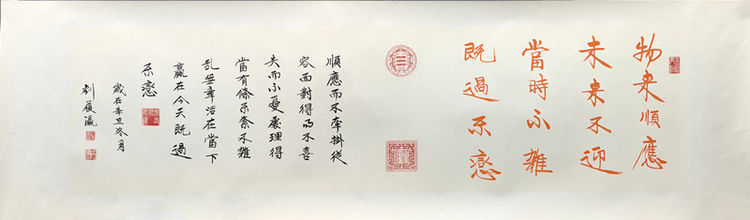 物来順應
未来不迎
當時不雜
既過不戀
順應而不牽掛從
容面對得而不喜
失而不憂處理得
當有條不紊不雜
亂無章活在當下
贏在今天既過
不戀
歲在辛丑冬月
劉